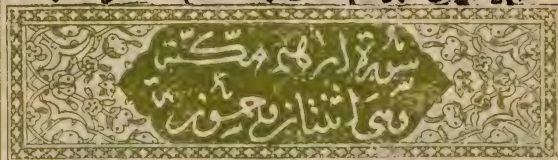 سورة ابرهيم مكية
وهي اثنتان وخمسون